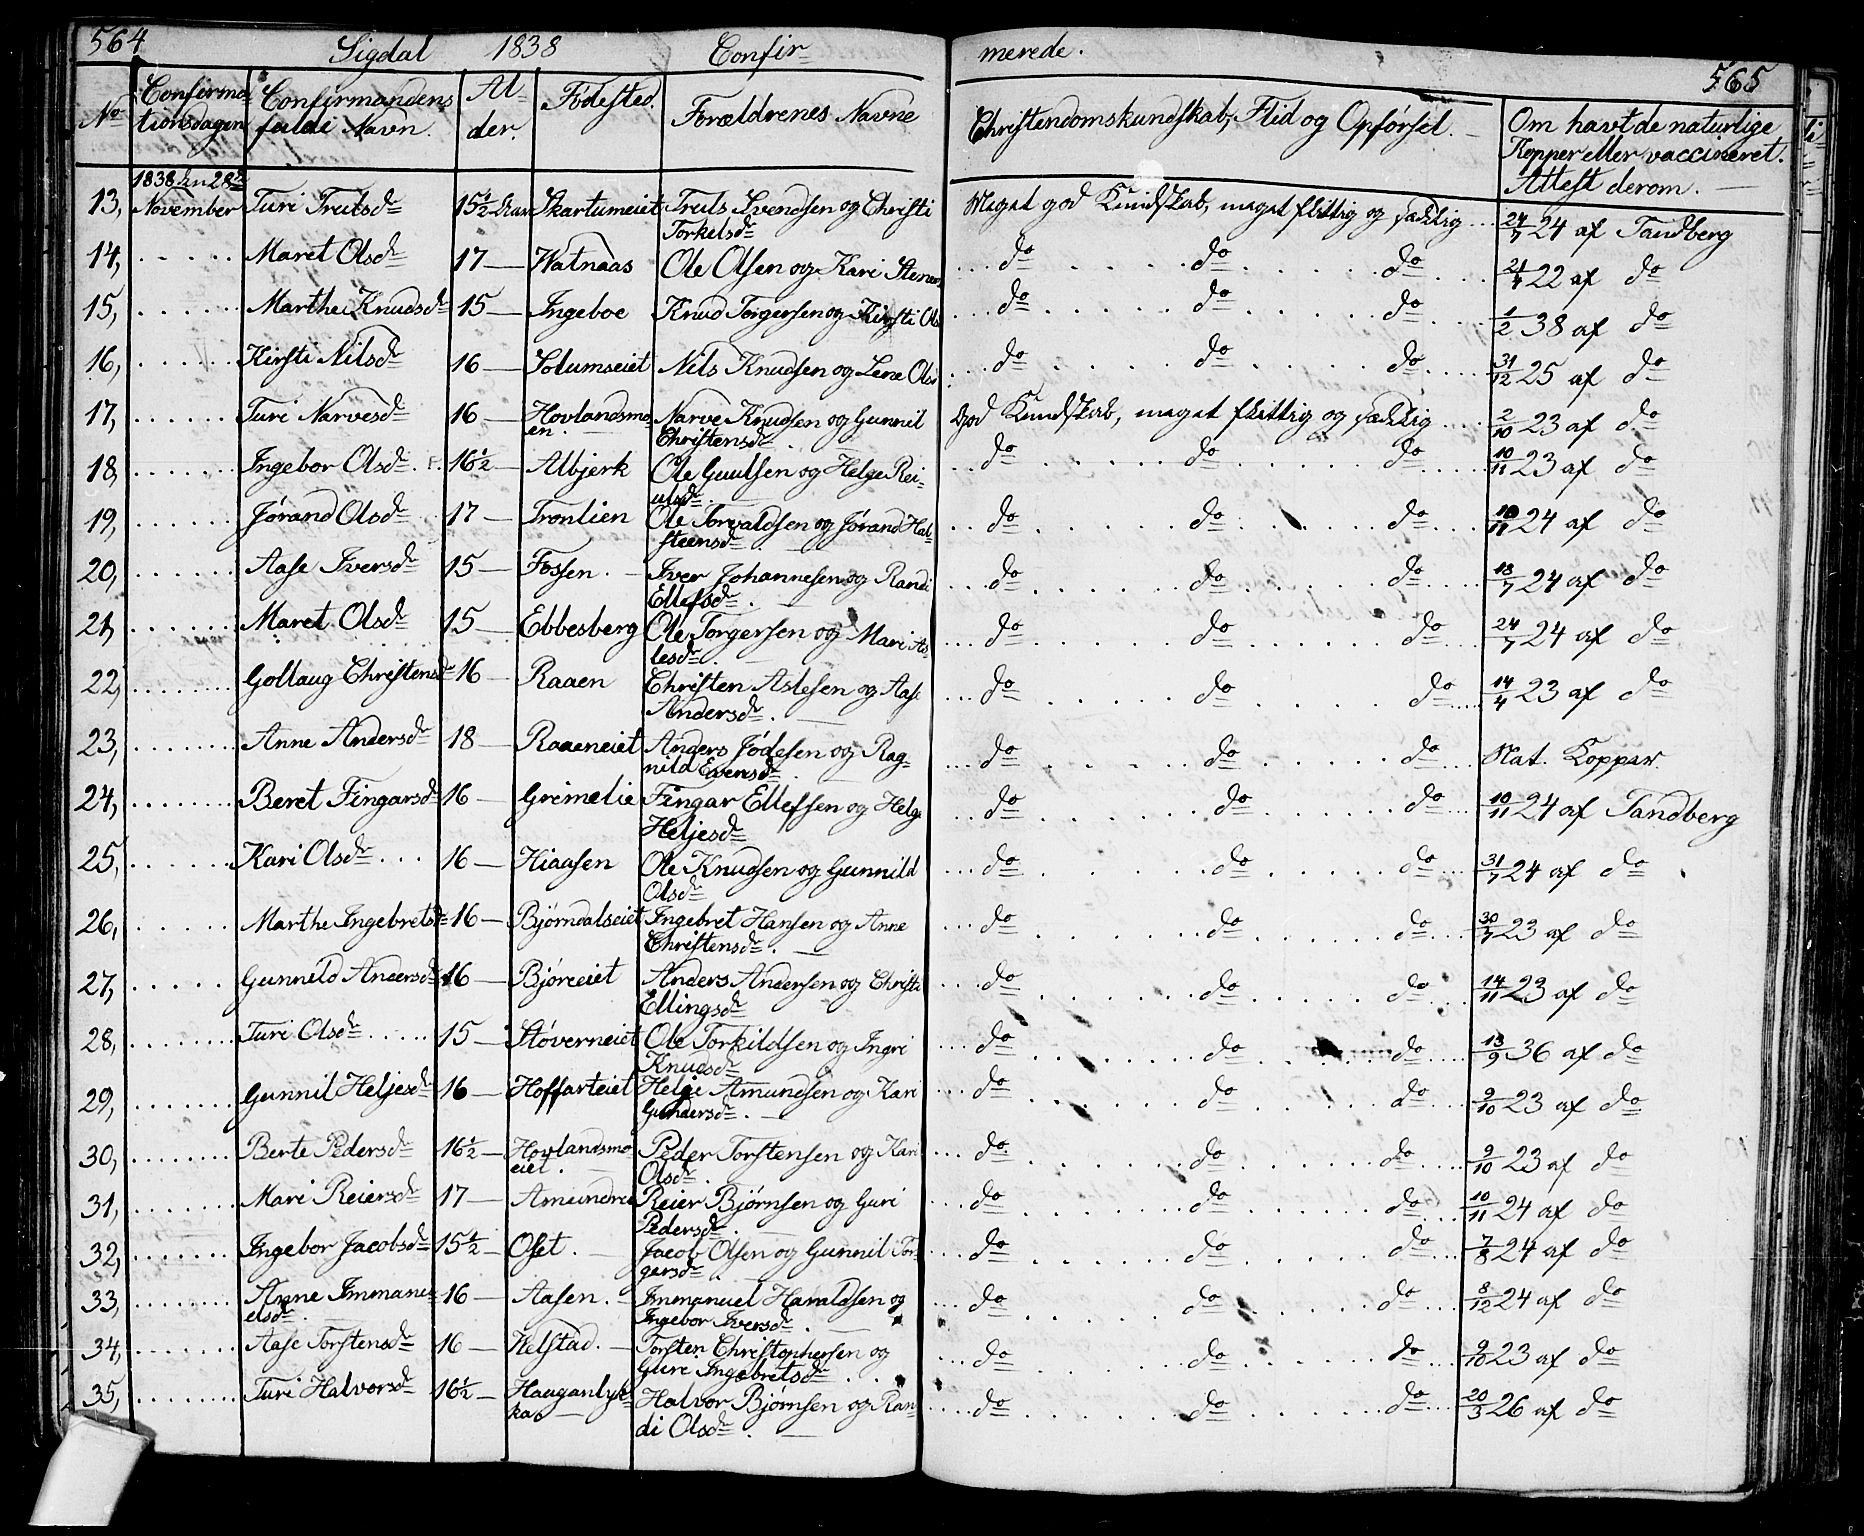 564 Sigdal 1838 Confir- merede. 565
No Confirma- Confirmandens Al- Fødested. Forældrenes Navne Christendomskundskab, Flid og Opførsel. Om havt de naturlige
tionsdagen fulde Navn. der. Kopper eller vaccineret.
Attest derom.
1838 den 28de
13, November Turi Trulsdr 15½ Aar Skartumeiet Truls Svendsen og Christi Meget god Kundskab, meget flittig og sædelig 24/7 24 af Tandberg
Torkelsdr
14, Maret Olsdr 17 Watnaas Ole Olsen og Kari do do do 22 af do
15, Marthe Knudsdr 15 Ingeboe Knud Torgersen og Kirsti Ols do do do 1/2 38 af do
16, Kirsti Nilsdr 16 Solumseiet Nils Knudsen og Lene Ols do do do 31/12 25 af do
17, Turi Narvesdr 16 Hovlandsmo- Narve Knudsen og Gunnil God Kundskab, meget flittig og sædelig 2/10 23 af do
en Christensdr
18, Ingebor Olsdr 16½ Albjerk Ole Guulsen og Helge Rei- do do do 10/11 23 af do
ulsdr
19, Jørand Olsdr 17 Tronlien Ole Torvaldsen og Jørand Hal- do do do 10/11 24 af do
steensdr
20, Aase Iversdr 15 Fossen Iver Johannesen og Randi do do do 18/7 24 af do
Ellefsdr
21, Maret Olsdr 15 Ebbesberg Ole Torgersen og Mari As- do do do 24/7 24 af do
lesdr
22, Gollaug Christensdr 16 Raaen Christen Aslesen og Aase do do do 14/4 23 af do
Andersdr
23, Anne Andersdr 18 Raaeneiet Anders Jødesen og Rag- do do do Nat. Kopper
nild Evensdr
24, Beret Fingarsdr 16 Grimelie Fingar Ellefsen og Helge do do do 10/11 24 af Tandberg
Heljesdr
25, Kari Olsdr 16 Kiaasen Ole Knudsen og Gunnild do do do 31/7 24 af do
Olsdr
26, Marthe Ingebretsdr 16 Bjørndalseiet Ingebret Hansen og Anne do do do 30/7 23 af do
Christensdr
27, Gunnild Andersdr 16 Bjøreeiet Anders Andersen og Christi do do do 14/11 23 af do
Ellingsdr
28, Turi Olsdr 15 Støverneiet Ole Torkildsen og Ingri do do do 13/9 36 af do
Knudsdr
29, Gunnil Heljesdr 16 Hoffarteiet Helge Amundsen og Kari do do do 9/10 23 af do
Gundersdr
30, Berte Pedersdr 16½ Hovlandsmo Peder Torstensen og Kari do do do 9/10 23 af do
eiet Olsdr
31, Mari Reiersdr 17 Reier Bjørnsen og Guri do do do 10/11 24 af do
Pedersdr
32, Ingebor Jacobsdr 15½ Oset Jacob Olsen og Gunnil Tor- do do do 7/8 24 af do
gersdr
33, Anne Immanu- 16 Aasen Immanuel Haraldsen og do do do 8/12 24 af do
elsdr Ingebor Iversdr
34, Aase Torstensdr 16 Helstad Torsten Christophersen og do do do 9/10 23 af do
Gure Ingebretsdr
35, Turi Halvorsdr 16½ Hauganlyk- Halvor Bjørnsen og Ran- do do do 20/3 26 af do
ka di Olsdr